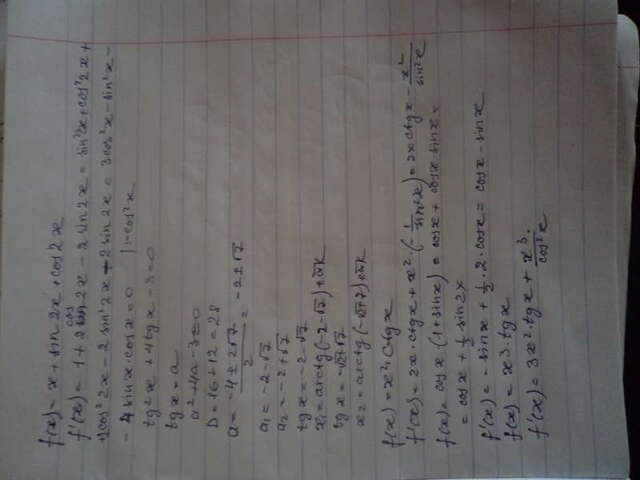 f(x) = x + sin 2x + cos 2x
f'(x) = 1 + 2 cos 2x - 2 sin 2x = sin²x + cos²x +
+2cos²x - 2 sin²x - 2 sin 2x = 3cos²x - sin²x -
- 4 sinx·cosx = 0 | :-cos²x
tg²x + 4tgx - 3 = 0
tgx = a
a² + 4a - 3 = 0
D = 16 + 12 = 28
a = (-4 ± 2√7)/2 = -2 ± √7
a₁ = -2 - √7
a₂ = -2 + √7
tgx = -2 - √7
x₁ = arctg(-2 - √7) + πk
tgx = -2 + √7
x₂ = arctg(-2 + √7) + πk
f(x) = x²·ctgx
f'(x) = 2x·ctgx + x²·(-1/sin²x) = 2x ctgx - x²/sin²x
f(x) = cosx·(1 + sinx) = cosx + cosx sinx =
= cosx + ½ sin 2x
f'(x) = -sinx + ½·2·cosx = cosx - sinx
f(x) = x³·tgx
f'(x) = 3x²·tgx + x³·1/cos²x